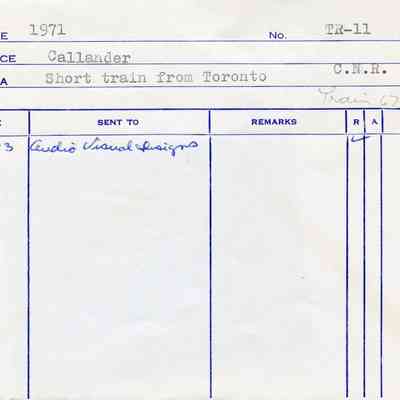 E 1971 No. TR-11
CE Callander
A Short train from Toronto C.N.R.
Train
SENT TO REMARKS R A
3 Audio Visual Designs ✓